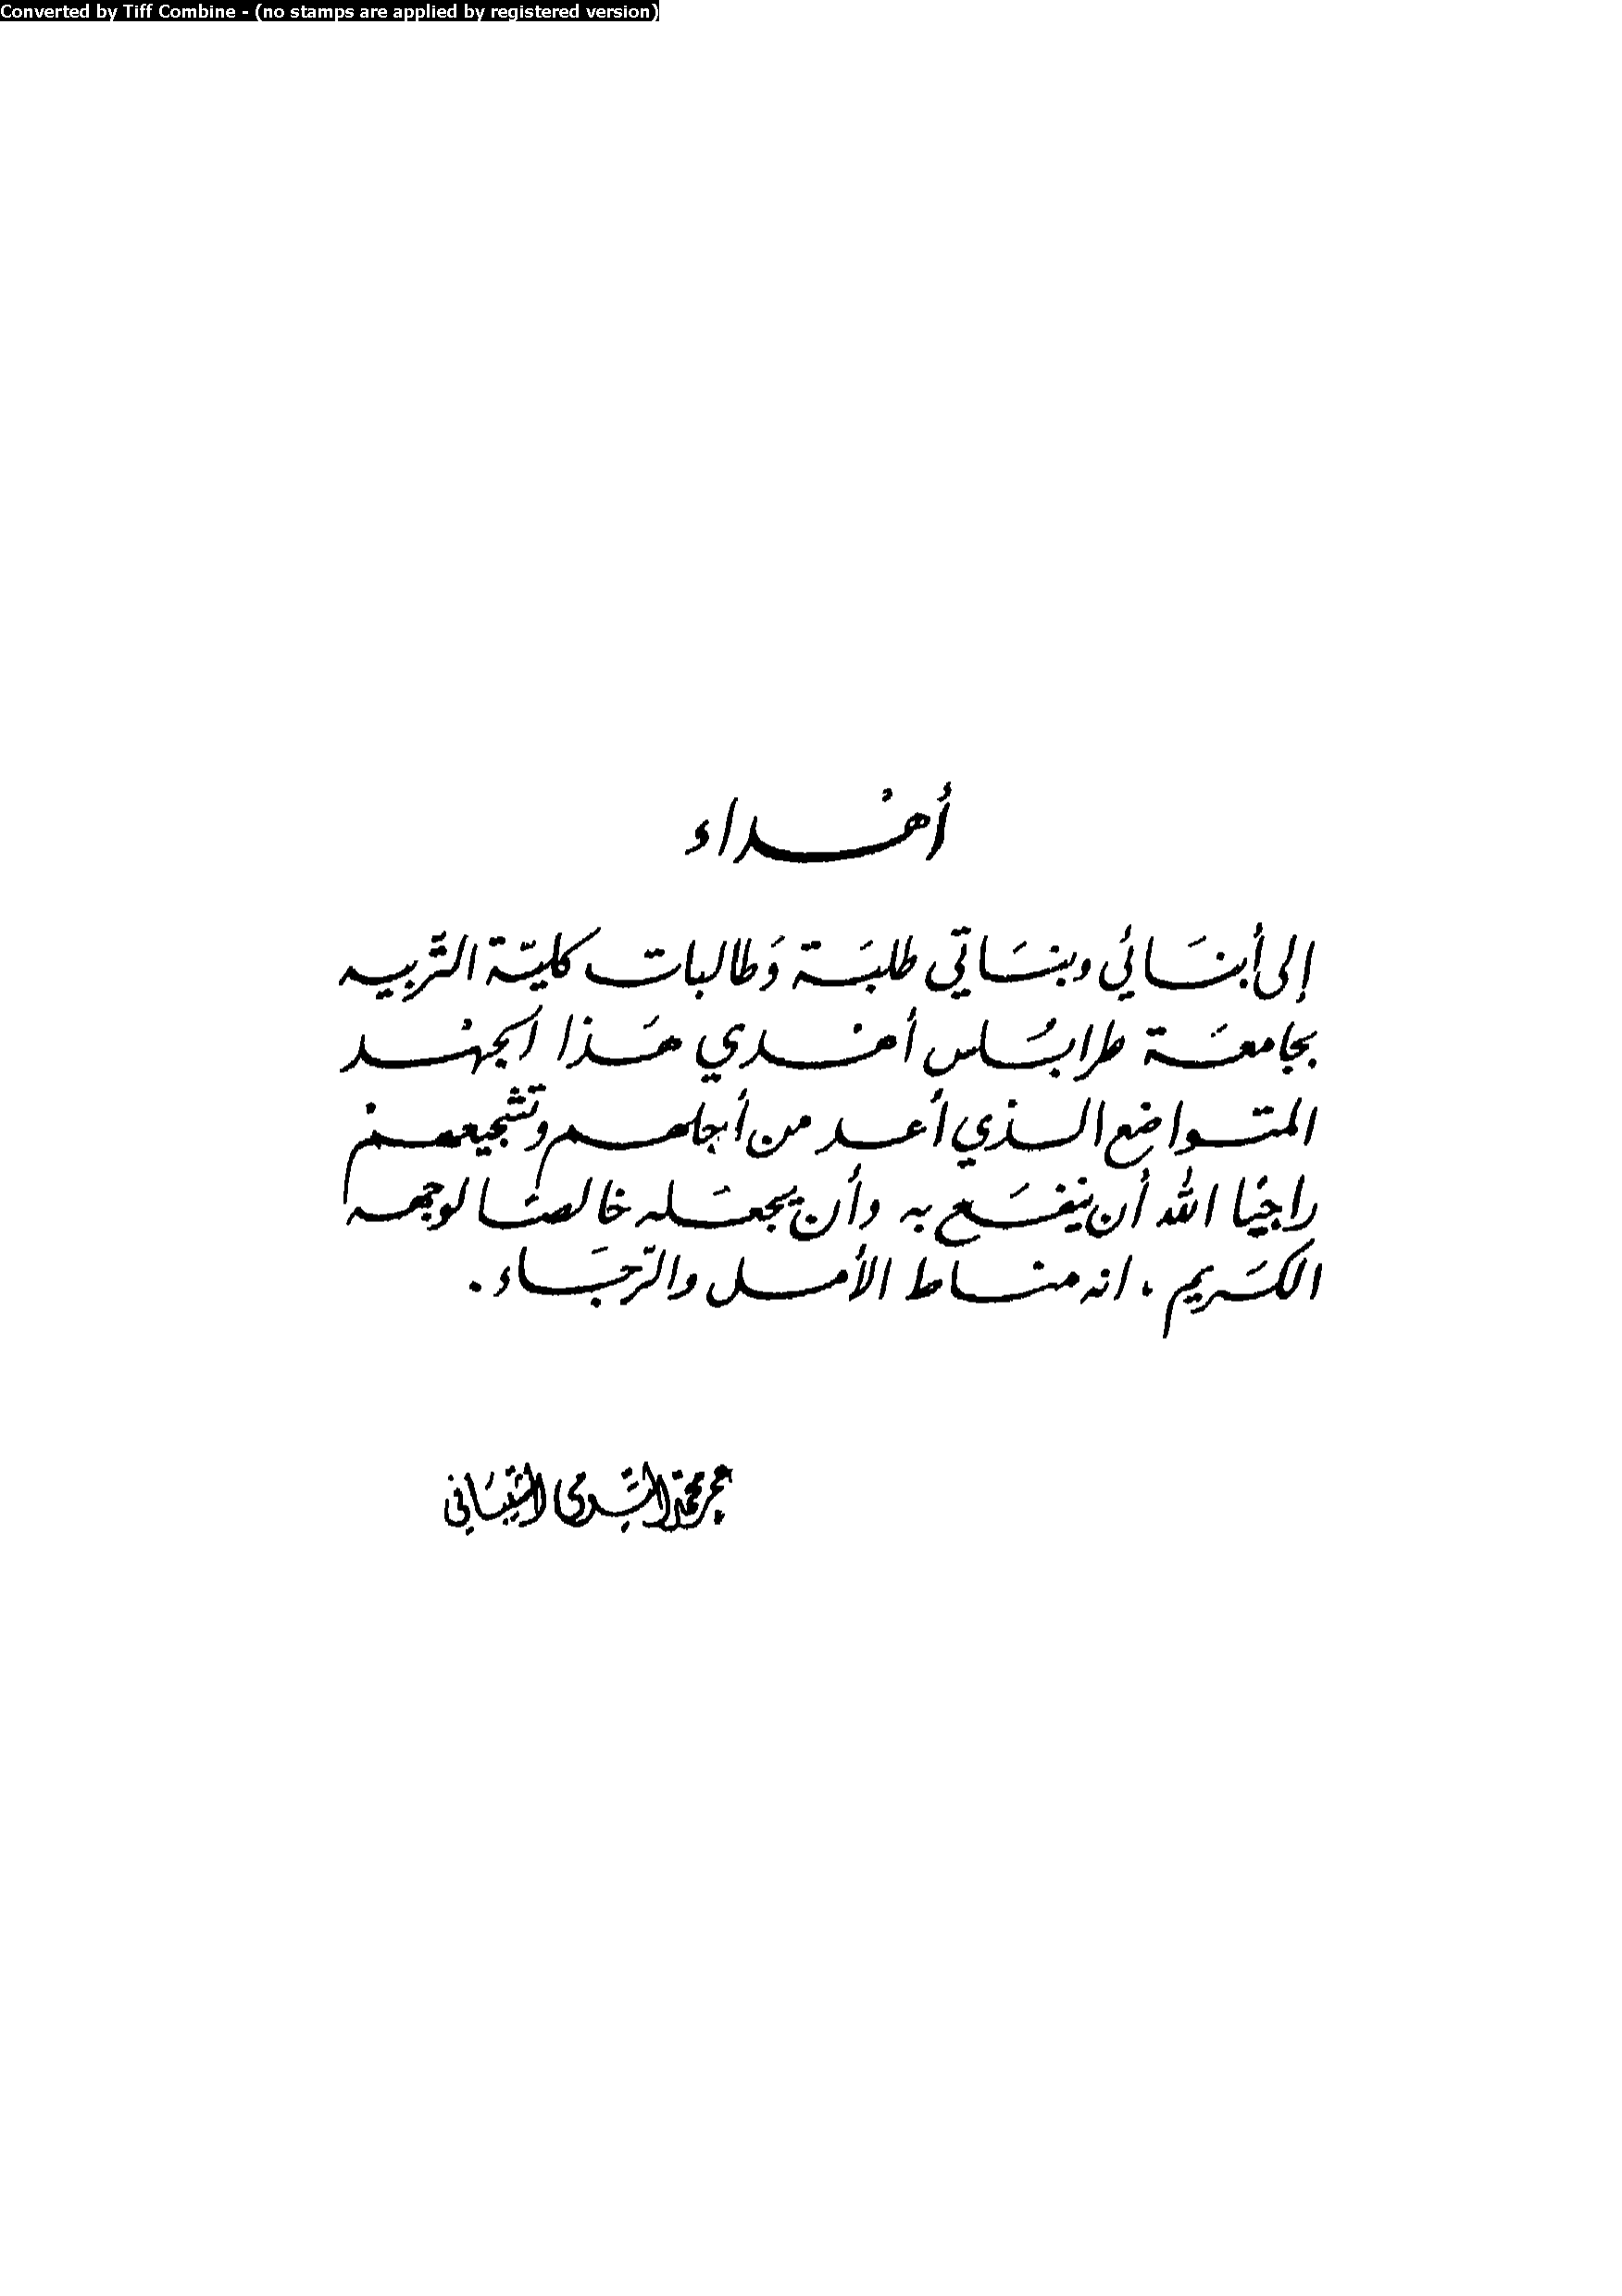 Converted by Tiff Combine - (no stamps are applied by registered version)
أهداء
إلى أبنَائي وبنَاتي طلبَة وَطالبات كليّة التَّربيه
بجامعَة طرابُلس أهدي هَذا الجهْد
المتواضع الذي أعد من أجلهم وتشجيعهم
راجيًا الله أن ينفَع به وأن يجعَله خالصًا لوجهه
الكَريم . انه مناط الأمل والرّجَاء .
عمر محمد التومي الشيبَاني